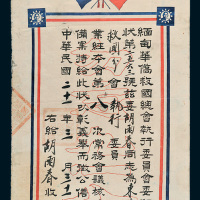 緬甸華僑救國總會執行委員會委
狀第二五三號茲委胡南春同志為東
救國分會執行委員
業經本會第八次常務會議核
備案特給此狀以彰義舉而徵公信
中華民國二十一年三月三十一
右給胡南春收